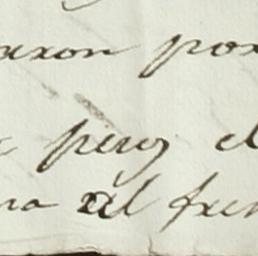 aron por
pero el
na al fren